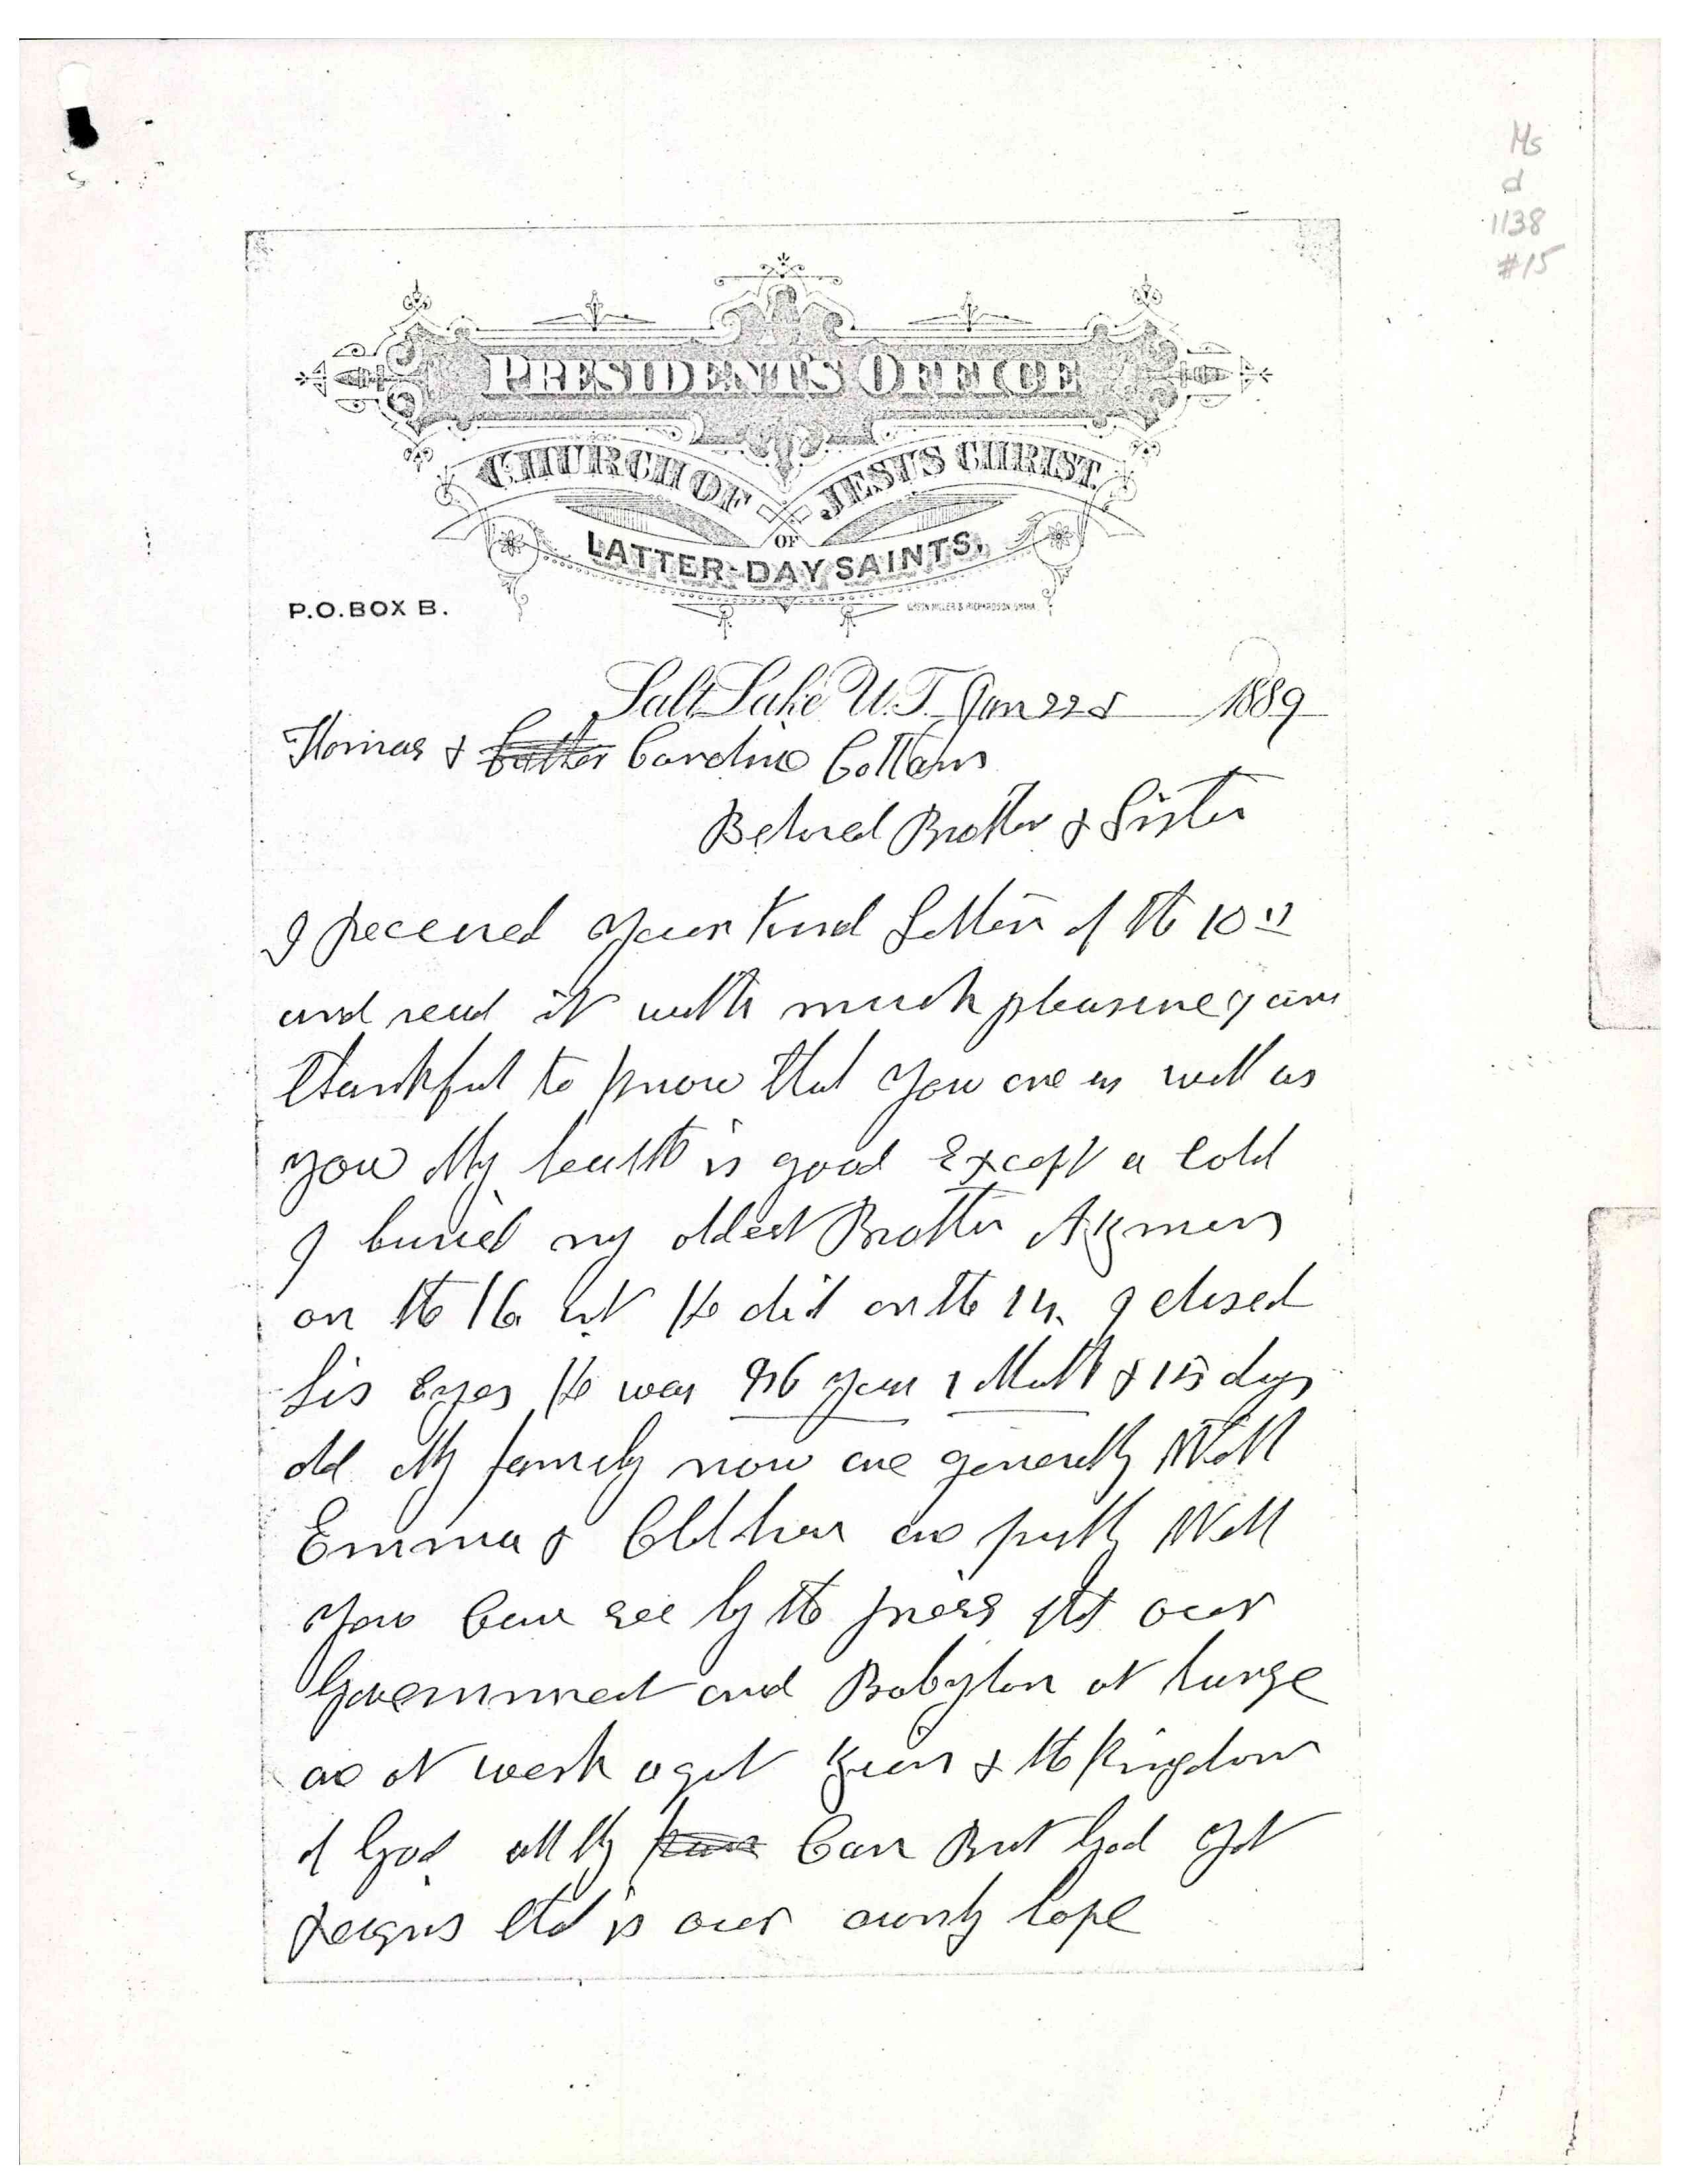 Ms
d
1138
#15
PRESIDENT'S OFFICE
CHURCH OF JESUS CHRIST
OF
LATTER-DAY SAINTS,
P.O. BOX B.
Salt Lake U.T. Jan 22d 1889
Thomas & Caroline Cottam
Beloved Brother & Sister
I received your kind Letter of the 10th
and read it with much pleasure I am
thankful to know that you are as well as
you My health is good Except a cold
I buried my oldest Brother Azmon
on the 16 inst He died on the 14. I closed
his Eyes He was 86 year 1 Month & 15 days
old My family now are generally Well
Emma & Children are pretty Well
You Can see by the press that our
Government and Babylon at large
are at work against Zion & the Kingdom
of God all they Can But God yet
reigns that is our ownly hope